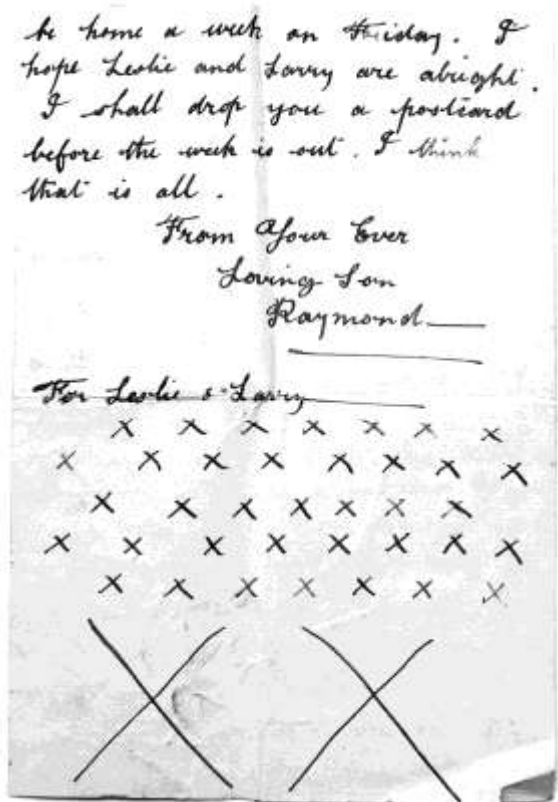 be home a week on Friday. I
hope Leslie and Larry are alright.
I shall drop you a postcard
before the week is out. I think
that is all.
From Your Ever
Loving Son
Raymond
For Leslie & Larry
x x x x x x x
x x x x x x x x
x x x x x x x
x x x x x x x x
x x x x x x x
X X